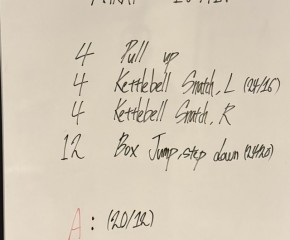 4 Pull up
4 Kettlebell Snatch, L (24/16)
4 Kettlebell Snatch, R
12 Box Jump, step down (24/20)
A: (20/12)